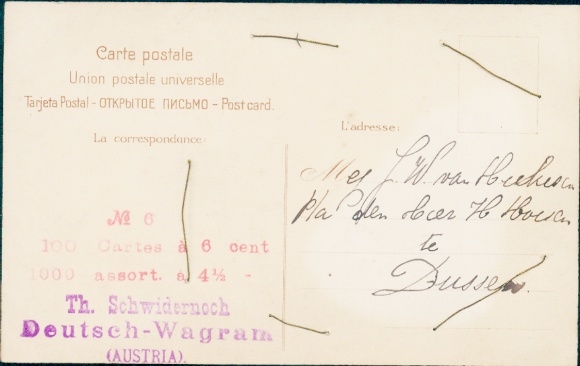 Carte postale
Union postale universelle
Tarjeta Postal - ОТКРЫТОЕ ПИСЬМО - Post card.
La correspondance:
L'adresse:
Mej J. W. van
p/a den Heer H.
te
Dussen.
№ 6
100 Cartes à 6 cent
1000 assort. á 4½ -
Th. Schwidernoch
Deutsch-Wagram
(AUSTRIA).